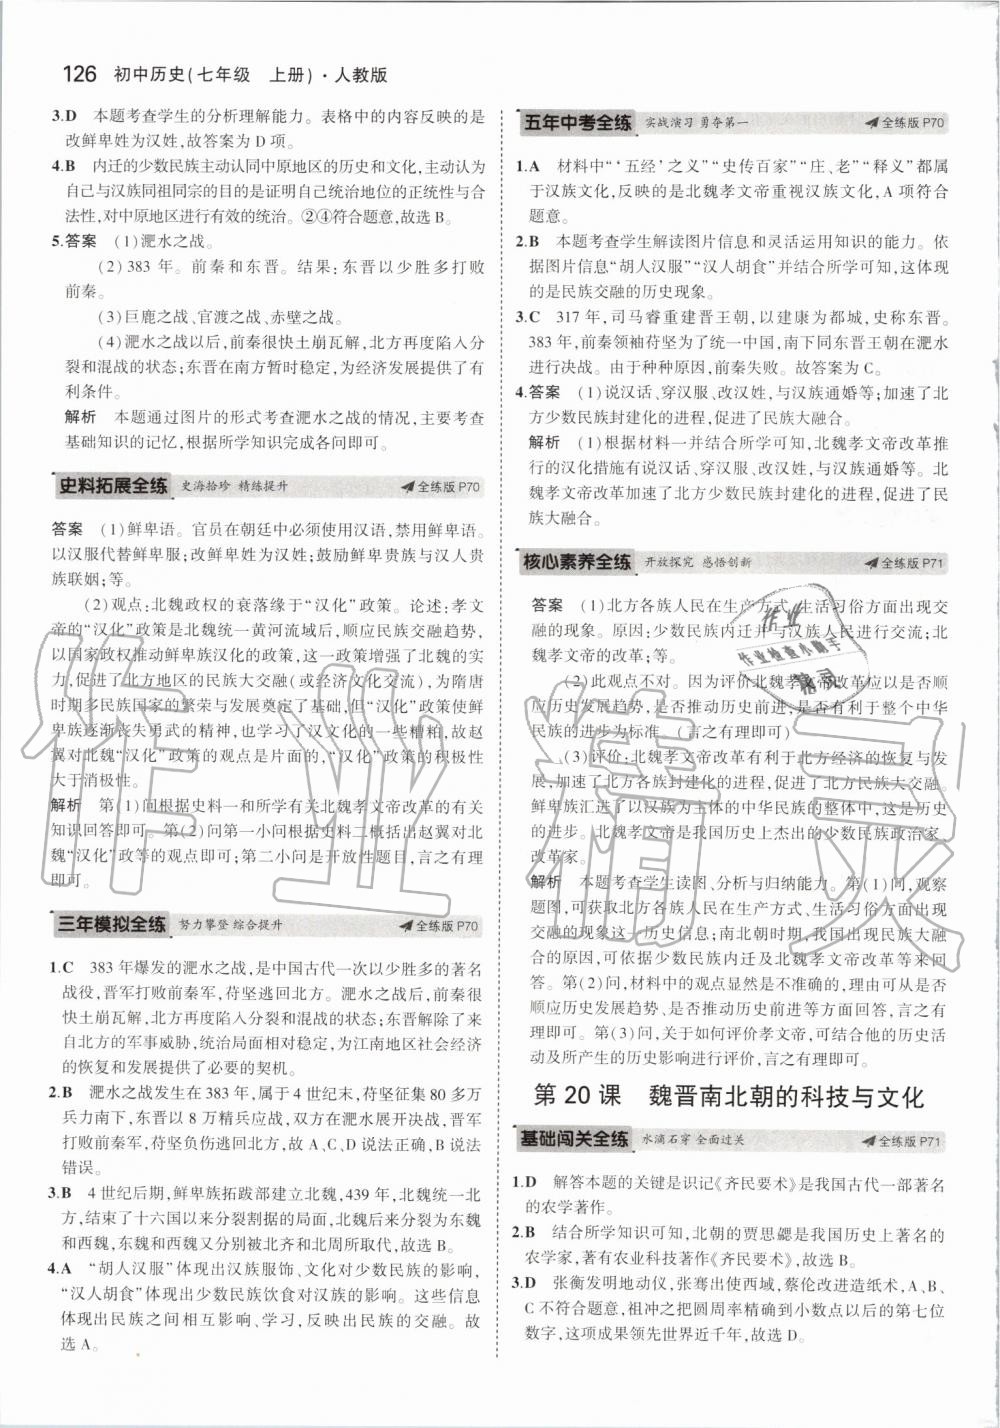 126 初中历史(七年级 上册)·人教版
3.D 本题考查学生的分析理解能力。表格中的内容反映的是
改鲜卑姓为汉姓,故答案为 D 项。
4.B 内迁的少数民族主动认同中原地区的历史和文化,主动认为
自己与汉族同祖同宗的目的是证明自己统治地位的正统性与合
法性,对中原地区进行有效的统治。②④符合题意,故选 B。
5.答案 (1)淝水之战。
(2)383 年。前秦和东晋。结果:东晋以少胜多打败
前秦。
(3)巨鹿之战、官渡之战、赤壁之战。
(4)淝水之战以后,前秦很快土崩瓦解,北方再度陷入分
裂和混战的状态;东晋在南方暂时稳定,为经济发展提供了有
利条件。
解析 本题通过图片的形式考查淝水之战的情况,主要考查
基础知识的记忆,根据所学知识完成各问即可。
史料拓展全练 史海拾珍 精练提升 全练版 P70
答案 (1)鲜卑语。官员在朝廷中必须使用汉语,禁用鲜卑语。
以汉服代替鲜卑服;改鲜卑姓为汉姓;鼓励鲜卑贵族与汉人贵
族联姻;等。
(2)观点:北魏政权的衰落缘于“汉化”政策。论述:孝文
帝的“汉化”政策是北魏统一黄河流域后,顺应民族交融趋势,
以国家政权推动鲜卑族汉化的政策,这一政策增强了北魏的实
力,促进了北方地区的民族大交融(或经济文化交流),为隋唐
时期多民族国家的繁荣与发展奠定了基础,但“汉化”政策使鲜
卑族逐渐丧失勇武的精神,也学习了汉文化的一些糟粕,故赵
翼对北魏“汉化”政策的观点是片面的,“汉化”政策的积极性
大于消极性。
解析 第(1)问根据史料一和所学有关北魏孝文帝改革的有关
知识回答即可。第(2)问第一小问根据史料二概括出赵翼对北
魏“汉化”政策的观点即可;第二小问是开放性题目,言之有理
即可。
三年模拟全练 努力攀登 综合提升 全练版 P70
1.C 383 年爆发的淝水之战,是中国古代一次以少胜多的著名
战役,晋军打败前秦军,苻坚逃回北方。淝水之战后,前秦很
快土崩瓦解,北方再度陷入分裂和混战的状态;东晋解除了来
自北方的军事威胁,统治局面相对稳定,为江南地区社会经济
的恢复和发展提供了必要的契机。
2.B 淝水之战发生在 383 年,属于 4 世纪末,苻坚征集 80 多万
兵力南下,东晋以 8 万精兵应战,双方在淝水展开决战,晋军
打败前秦军,苻坚负伤逃回北方,故 A、C、D 说法正确,B 说法
错误。
3.B 4 世纪后期,鲜卑族拓跋部建立北魏,439 年,北魏统一北
方,结束了十六国以来分裂割据的局面,北魏后来分裂为东魏
和西魏,东魏和西魏又分别被北齐和北周所取代,故选 B。
4.A “胡人汉服”体现出汉族服饰、文化对少数民族的影响,
“汉人胡食”体现出少数民族饮食对汉族的影响。这些信息
体现出民族之间相互影响、学习,反映出民族的交融。故
选 A。
五年中考全练 实战演习 勇夺第一 全练版 P70
1.A 材料中“‘五经’之义”“史传百家”“庄、老”“释义”都属
于汉族文化,反映的是北魏孝文帝重视汉族文化,A 项符合
题意。
2.B 本题考查学生解读图片信息和灵活运用知识的能力。依
据图片信息“胡人汉服”“汉人胡食”并结合所学可知,这体现
的是民族交融的历史现象。
3.C 317 年,司马睿重建晋王朝,以建康为都城,史称东晋。
383 年,前秦领袖苻坚为了统一中国,南下同东晋王朝在淝水
进行决战。由于种种原因,前秦失败。故答案为 C。
4.答案 (1)说汉话、穿汉服、改汉姓,与汉族通婚等;加速了北
方少数民族封建化的进程,促进了民族大融合。
解析 (1)根据材料一并结合所学可知,北魏孝文帝改革推
行的汉化措施有说汉话、穿汉服、改汉姓、与汉族通婚等。北
魏孝文帝改革加速了北方少数民族封建化的进程,促进了民
族大融合。
核心素养全练 开放探究 感悟创新 全练版 P71
答案 (1)北方各族人民在生产方式、生活习俗方面出现交
融的现象。原因:少数民族内迁并与汉族人民进行交流;北
魏孝文帝的改革;等。
(2)此观点不对。因为评价北魏孝文帝改革应以是否顺
应历史发展趋势,是否推动历史进步,是否有利于整个中华
民族的进步为标准。(言之有理即可)
(3)评价:北魏孝文帝改革有利于北方经济的恢复与发
展,加速了北方各族封建化的进程,促进了北方民族大交融。
鲜卑族汇进了以汉族为主体的中华民族的整体中,这是历史
的进步。北魏孝文帝是我国历史上杰出的少数民族政治家、
改革家。
解析 本题考查学生读图、分析与归纳能力。第(1)问,观察
题图,可获取北方各族人民在生产方式、生活习俗方面出现
交融的现象这一信息;南北朝时期,我国出现大规模民族交
融的原因,可依据少数民族内迁及北魏孝文帝改革等来回
答。第(2)问,材料中的观点显然是不准确的,理由可从是否
顺应历史发展趋势、是否推动历史进步等方面回答,言之有
理即可。第(3)问,关于如何评价孝文帝,可结合他的历史活
动及所产生的历史影响进行评价,言之有理即可。
第 20 课 魏晋南北朝的科技与文化
基础闯关全练 水滴石穿 全面过关 全练版 P71
1.D 解答本题的关键是识记《齐民要术》是我国古代一部著名
的农学著作。
2.B 结合所学知识可知,北朝的贾思勰是我国历史上著名的
农学家,著有农业科技著作《齐民要术》,故选 B。
3.D 张衡发明地动仪,张骞出使西域,蔡伦改进造纸术,A、B、
C 不符合题意,祖冲之把圆周率精确到小数点以后的第七位
数字,这项成果领先世界近千年,故选 D。
作业精灵
作业
作业检查小助手
精灵